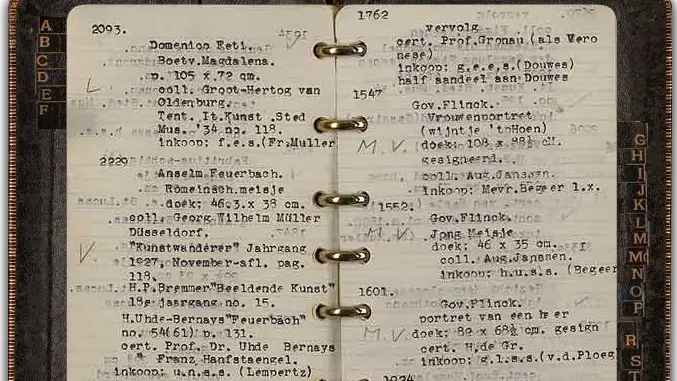 2093.
Domenico Feti.
Boetv.Magdalena.
p. 105 x 72 cm.
coll. Groot-Hertog van
Oldenburg.
Tent. It.Kunst .Sted
Mus. '34 no. 118.
inkoop: f.e.s.(Fr.Muller
2229
Anselm Feuerbach.
Romeinsch meisje
doek; 46.3 x 38 cm.
coll. Georg Wilhelm Müller
Düsseldorf.
V.
"Kunstwanderer" Jahrgang
1927, November-afl. pag.
118.
H.P.Bremmer"Beeldende Kunst"
18e jaargang no. 15.
H.Uhde-Bernays"Feuerbach"
no. 54(61) p. 131.
cert. Prof. Dr. Uhde Bernays
" Franz Hanfstaengel.
inkoop: u.n.s.s. (Lempertz)
1762
vervolg
cert. Prof.Gronau (als Vero
nese)
inkoop: g.e.e.s.(Douwes)
half aandeel aan Douwes
1547
Gov.Flinck.
Vrouwenportret
(wijntje 'tHoen)
M.V.
doek: 108 x 88½ cM.
gesigneerd.
coll. Aug.Janssen.
inkoop: Mevr.Begeer l.x.
1552.
Gov.Flinck.
M.V.
Jong Meisje
doek: 46 x 35 cm.
coll. Aug.Janssen.
inkoop: h.u.s.s. (Begeer
1601.
Gov.Flinck.
portret van een heer
M.V.
doek: 82 x 68½ cm. gesign
cert. H.de Gr.
inkoop: g.l.s.s.(v.d.Ploeg
A
B
C
D
E
F
G
H
I
J
K
L
M
N
O
P
R
S
T